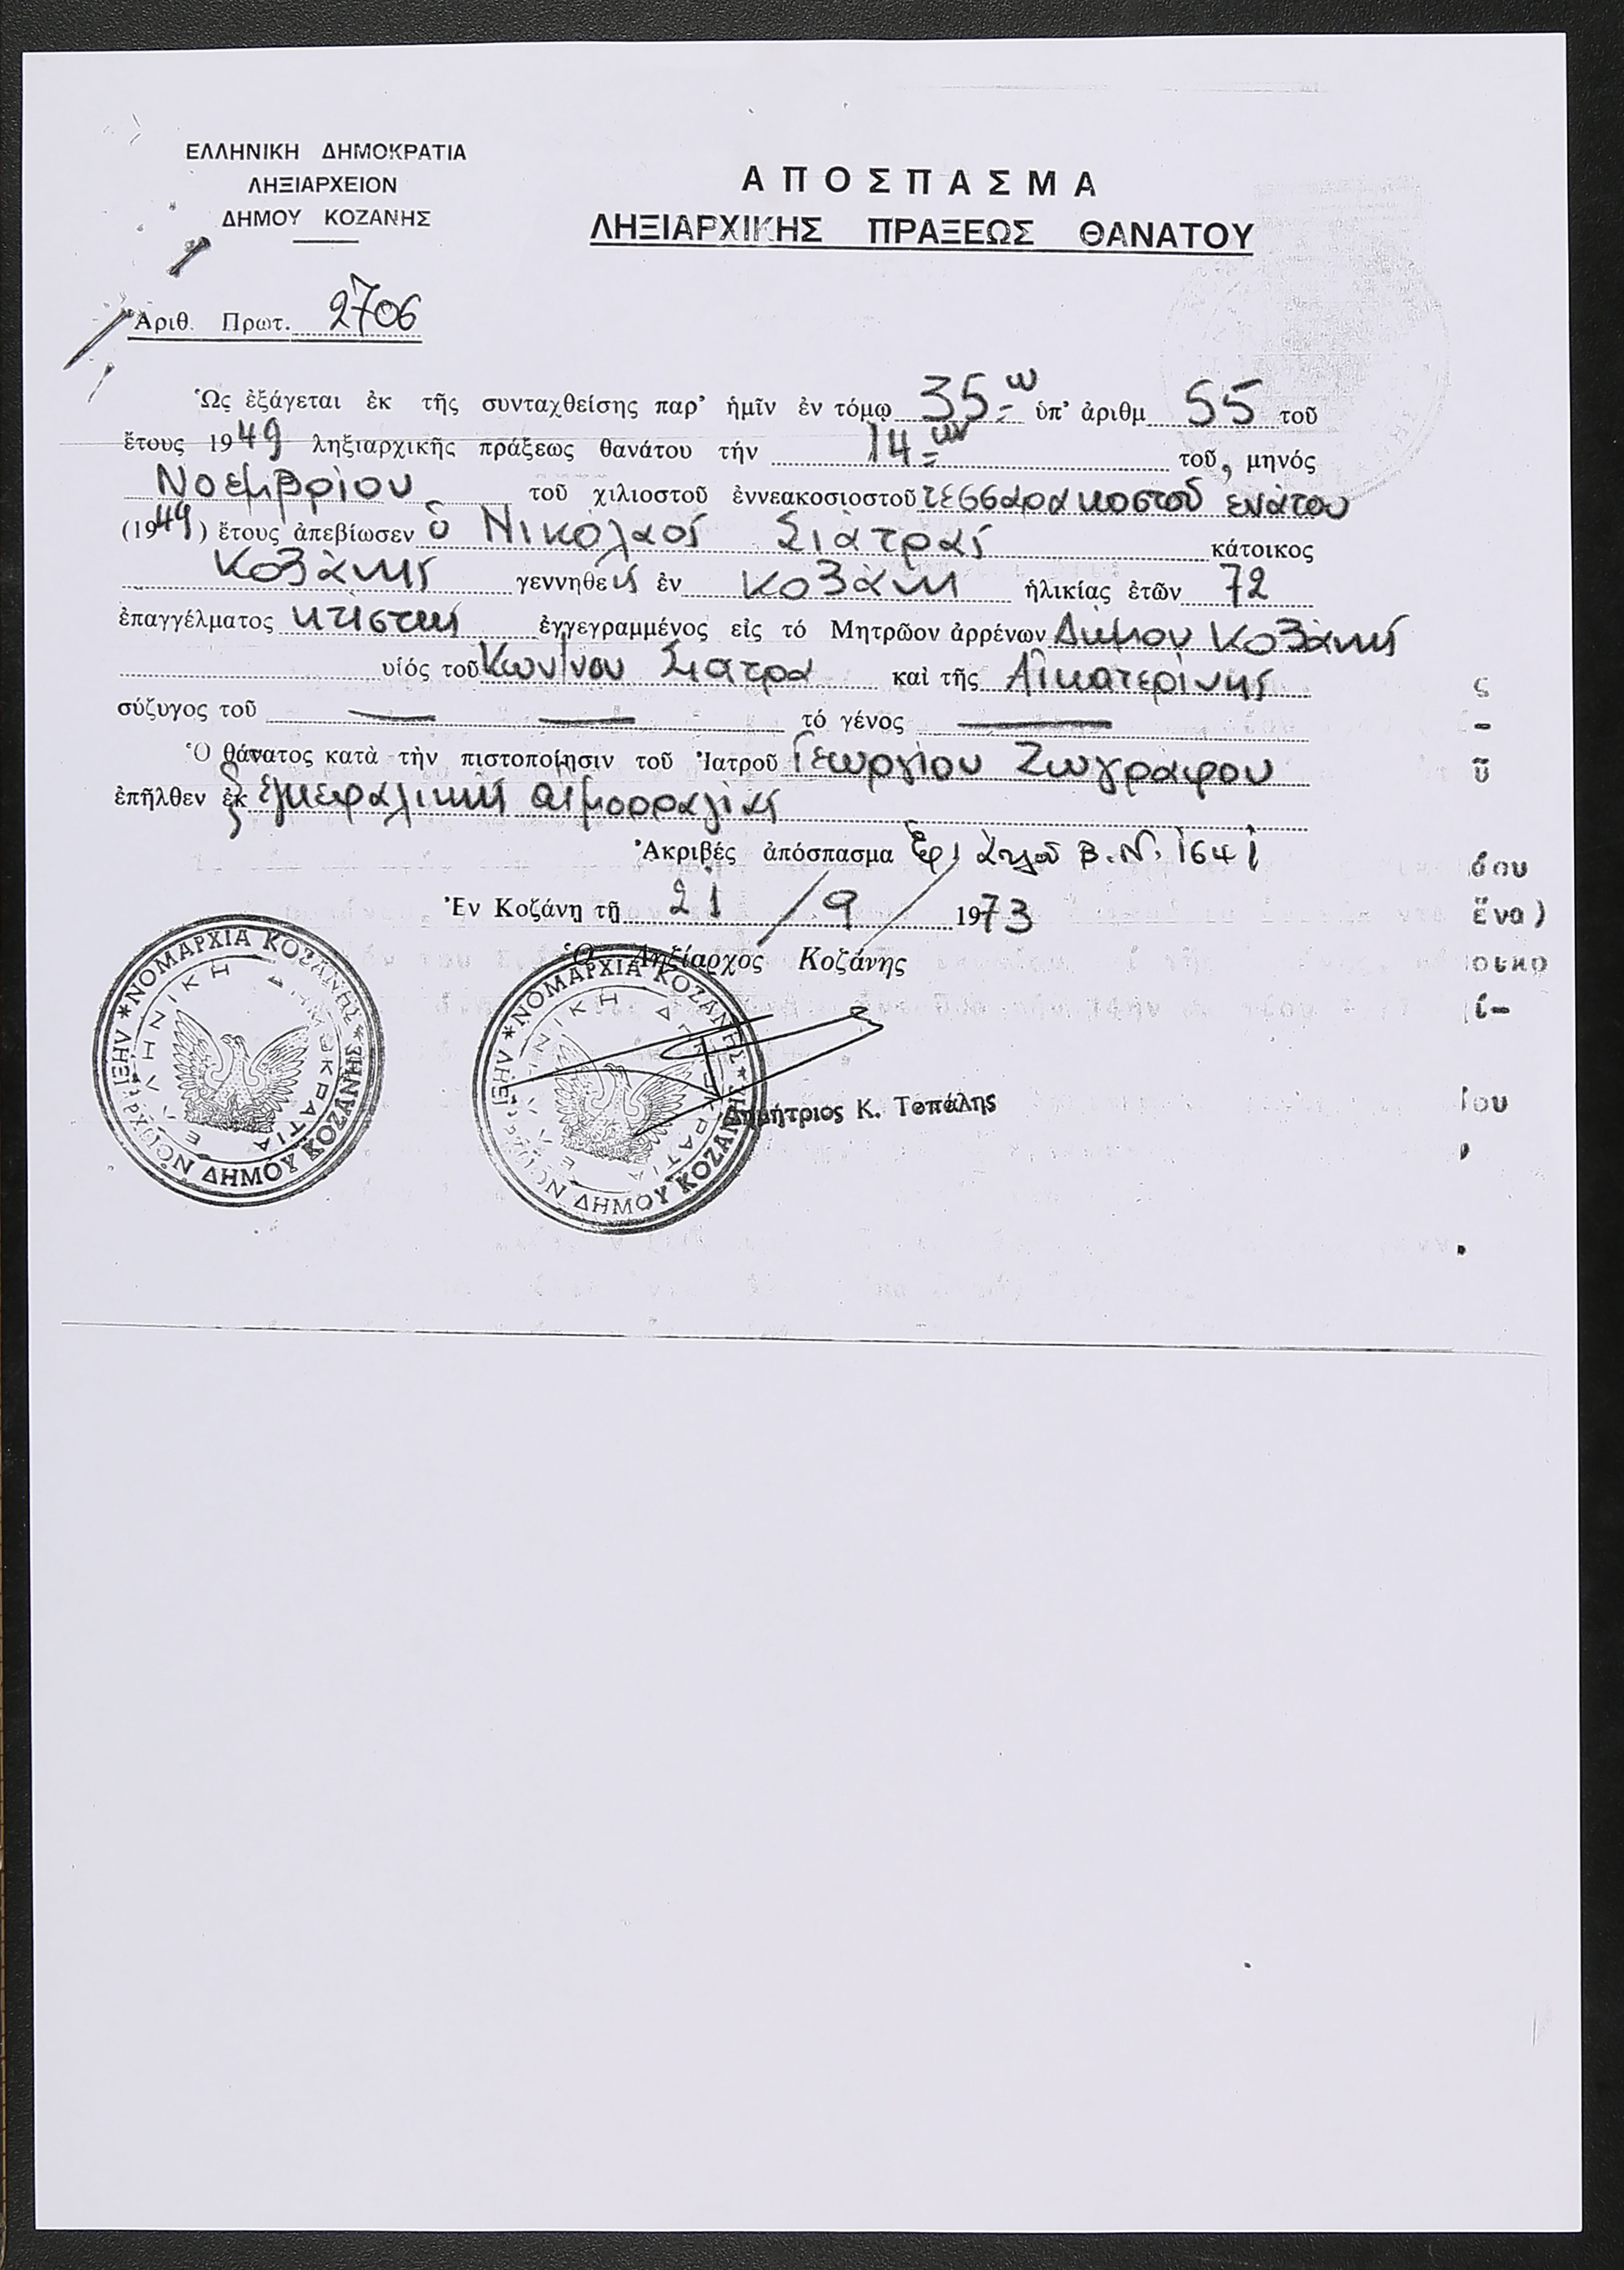 ΕΛΛΗΝΙΚΗ ΔΗΜΟΚΡΑΤΙΑ
ΛΗΞΙΑΡΧΕΙΟΝ
ΔΗΜΟΥ ΚΟΖΑΝΗΣ
ΑΠΟΣΠΑΣΜΑ
ΛΗΞΙΑΡΧΙΚΗΣ ΠΡΑΞΕΩΣ ΘΑΝΑΤΟΥ
Ἀριθ. Πρωτ. 2706
Ὡς ἐξάγεται ἐκ τῆς συνταχθείσης παρ' ἡμῖν ἐν τόμῳ 35=ω ὑπ' ἀριθμ 55 τοῦ
ἔτους 1949 ληξιαρχικῆς πράξεως θανάτου τήν 14=ην τοῦ, μηνός
Νοεμβρίου τοῦ χιλιοστοῦ ἐννεακοσιοστοῦ τεσσαρακοστοῦ ενάτου
(1949) ἔτους ἀπεβίωσεν ὁ Νικόλαος Σιάτρας κάτοικος
Κοζάνης γεννηθείς ἐν Κοζάνη ἡλικίας ἐτῶν 72
ἐπαγγέλματος κτίστης ἐγγεγραμμένος εἰς τό Μητρῶον ἀρρένων Δήμου Κοζάνης
υἱός τοῦ Κων/νου Σιατρα καὶ τῆς Αἰκατερίνης
σύζυγος τοῦ — — τό γένος —
Ὁ θάνατος κατὰ τὴν πιστοποίησιν τοῦ Ἰατροῦ Γεωργίου Ζωγράφου
ἐπῆλθεν ἐξ ἐγκεφαλικής αιμορραγίας
Ἀκριβές ἀπόσπασμα Β.Ν. 1641
Ἐν Κοζάνῃ τῇ 21/9/1973
Ὁ Ληξίαρχος Κοζάνης
Δημήτριος Κ. Τοπάλης
*ΝΟΜΑΡΧΙΑ ΚΟΖΑΝΗΣ*
ΛΗΞΙΑΡΧΕΙΟΝ ΔΗΜΟΥ ΚΟΖΑΝΗΣ
ΕΛΛΗΝΙΚΗ ΔΗΜΟΚΡΑΤΙΑ
*ΝΟΜΑΡΧΙΑ ΚΟΖΑΝΗΣ*
ΛΗΞΙΑΡΧΕΙΟΝ ΔΗΜΟΥ ΚΟΖΑΝΗΣ
ΕΛΛΗΝΙΚΗ ΔΗΜΟΚΡΑΤΙΑ